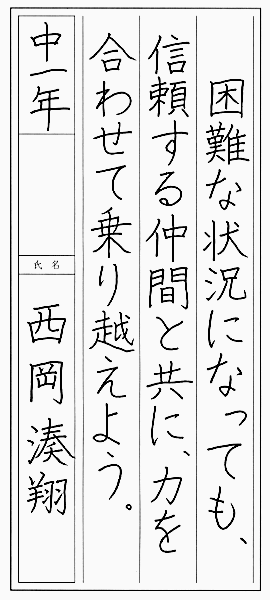 困難な状況になっても、
信頼する仲間と共に、力を
合わせて乗り越えよう。
中一年
氏名
西岡湊翔